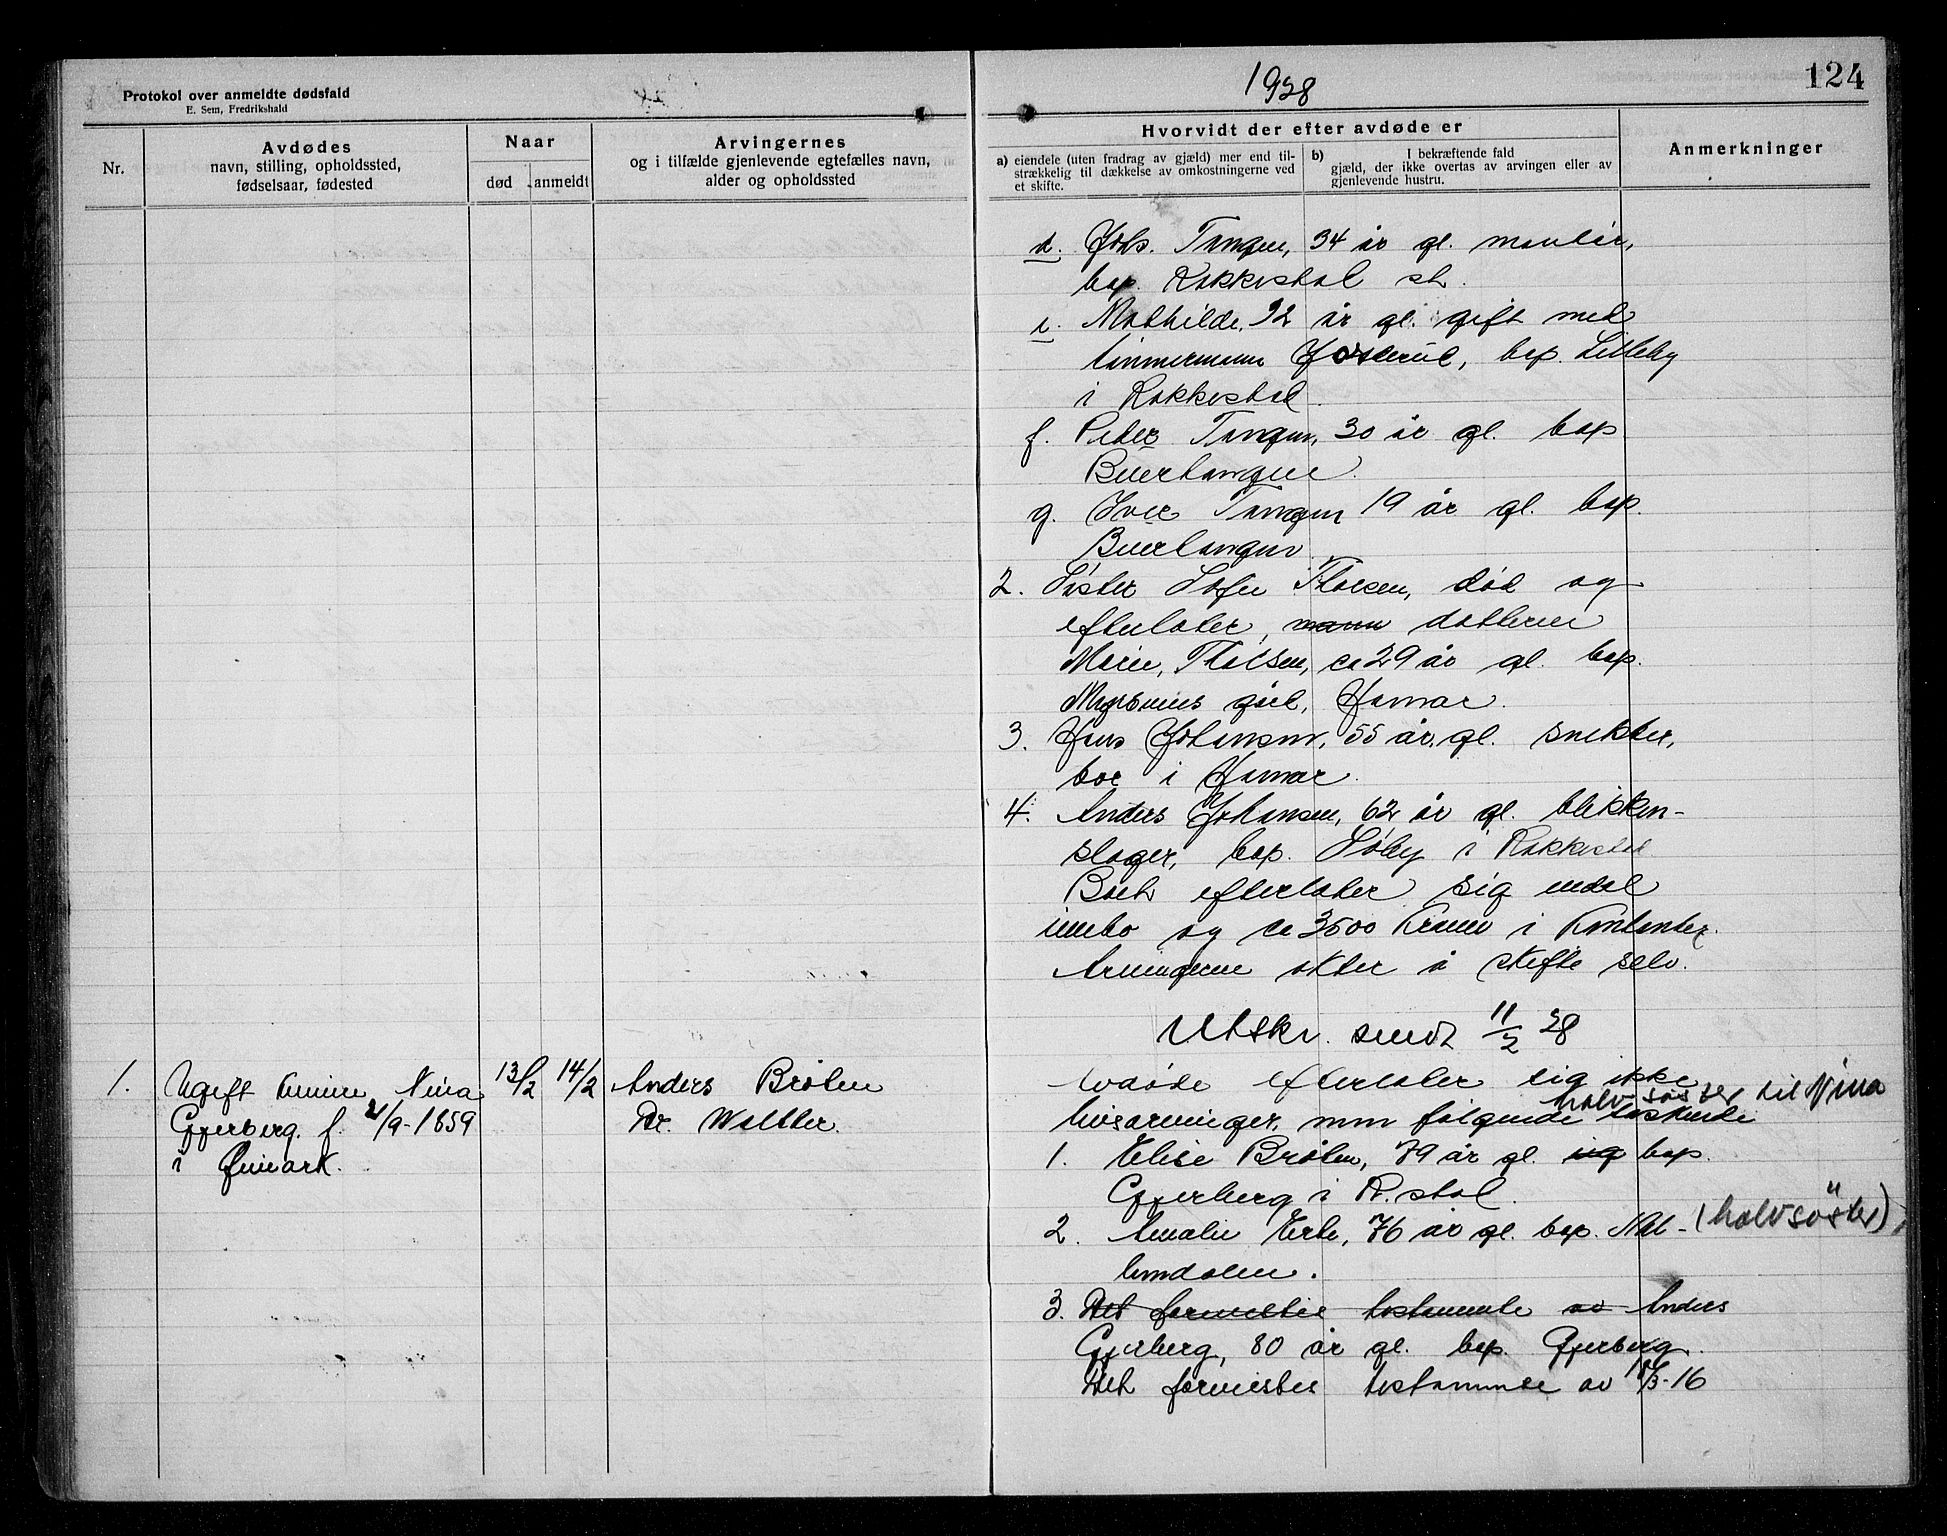 Protokol over anmeldte dødsfald
E. Sem, Fredrikshald
1928
124
Nr.
Avdødes
navn, stilling, opholdssted,
fødselsaar, fødested
Naar
død
anmeldt
Arvingernes
og i tilfælde gjenlevende egtefælles navn,
alder og opholdssted
Hvorvidt der efter avdøde er
a) eiendele (uten fradrag av gjæld) mer end til-
strækkelig til dækkelse av omkostningerne ved
et skifte.
b) I bekræftende fald
gjæld, der ikke overtas av arvingen eller av
gjenlevende hustru.
Anmerkninger
d. Johs. Tangen, 34 år gl. montør,
bop. Rakkestad st.
e. Mathilde, 32 år gl. gift med
tømmermann, bop. Lilleby
i Rakkestad
f. Peder Tangen, 30 år gl. bop
Buertangen.
g. Iver Tangen 19 år gl. bop.
Buertangen
2. Søster Sofie Thoresen, død og
efterlater, mann datteren
Marie, Thoresen, ca 29 år gl. bop.
gård, Hamar.
3. Hans Johansen, 55 år. gl. snekker,
bor i Hamar.
4. Anders Johansen, 62 år gl. blikken-
slager, bop. Søby i Rakkestad
Boet efterlater sig endel
innbo og ca 3500 kroner i kontanter.
Arvingerne akter å skifte selv.
Utskr. sendt 11/2 28
1. Ugift kvinne Nina
Gjerberg. f. 2/9-1859
i Ømark.
13/2 14/2
Anders Bråten
Dr. Walther.
Avdøde efterlater sig ikke
halvsøster til Nina
livsarvinger, men følgende søskende
1. Elise Bråten, 79 år gl. og bop.
Gjerberg i R.stad.
2. Amalie Erte, 76 år gl. bop. - (halvsøster)
3. Det forvistes testamente av Anders
Gjerberg, 80 år gl. bop. Gjerberg.
Det forvistes testamente av /3-16